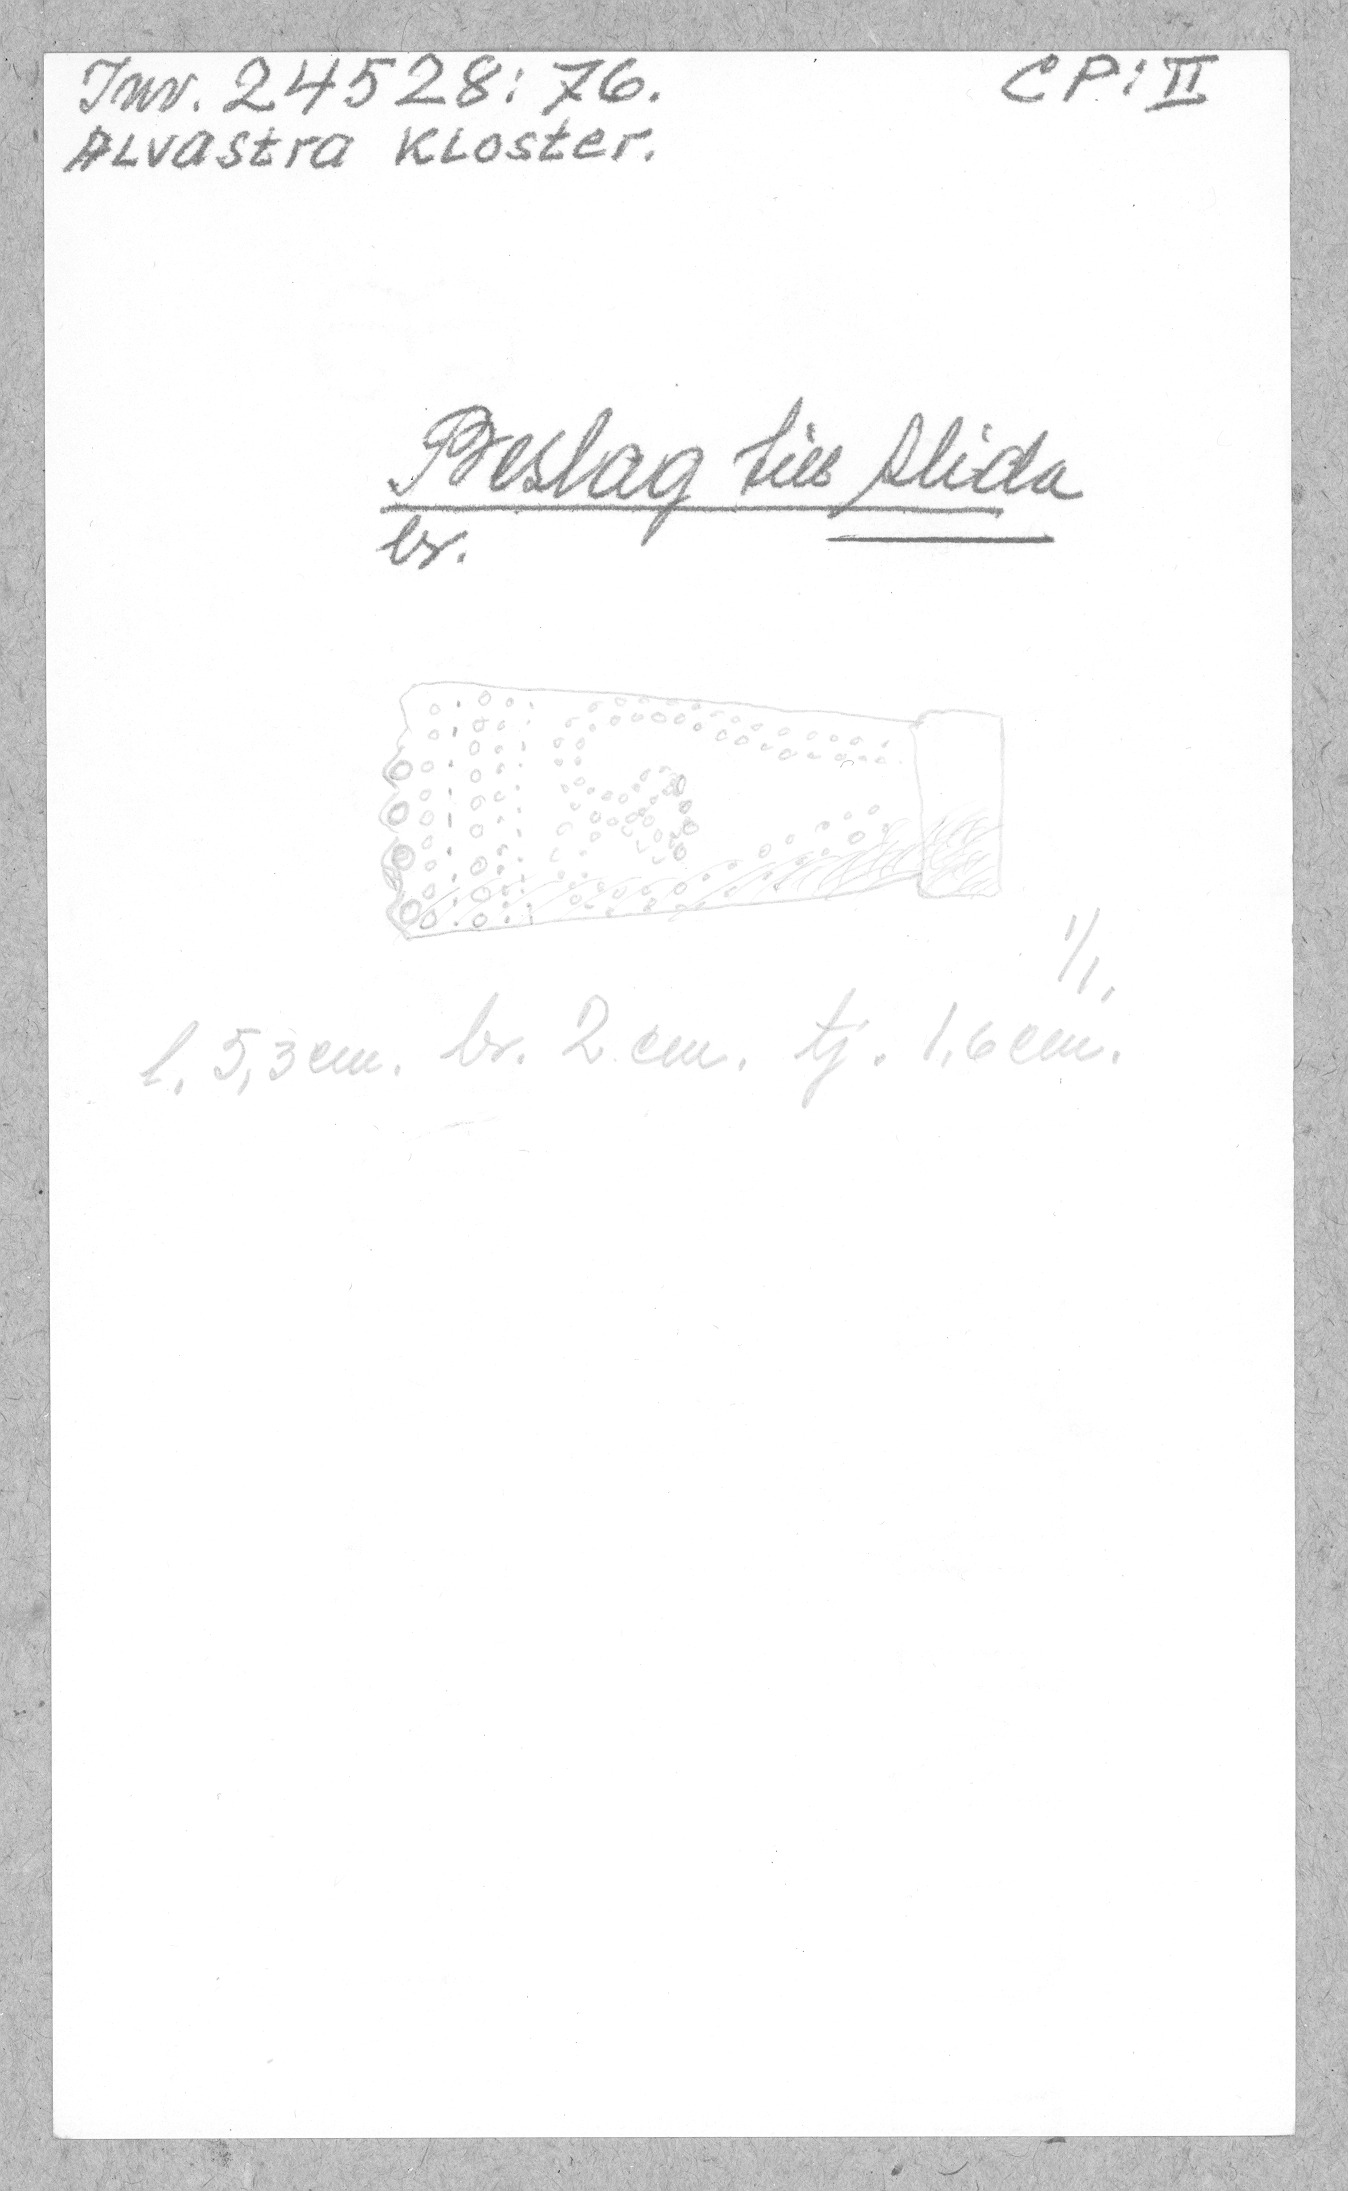 Inv. 24528:76. CP:II
Alvastra Kloster.
Beslag till slida
br.
1/1.
l. 5,3 cm. br. 2 cm. tj. 1,6 cm.